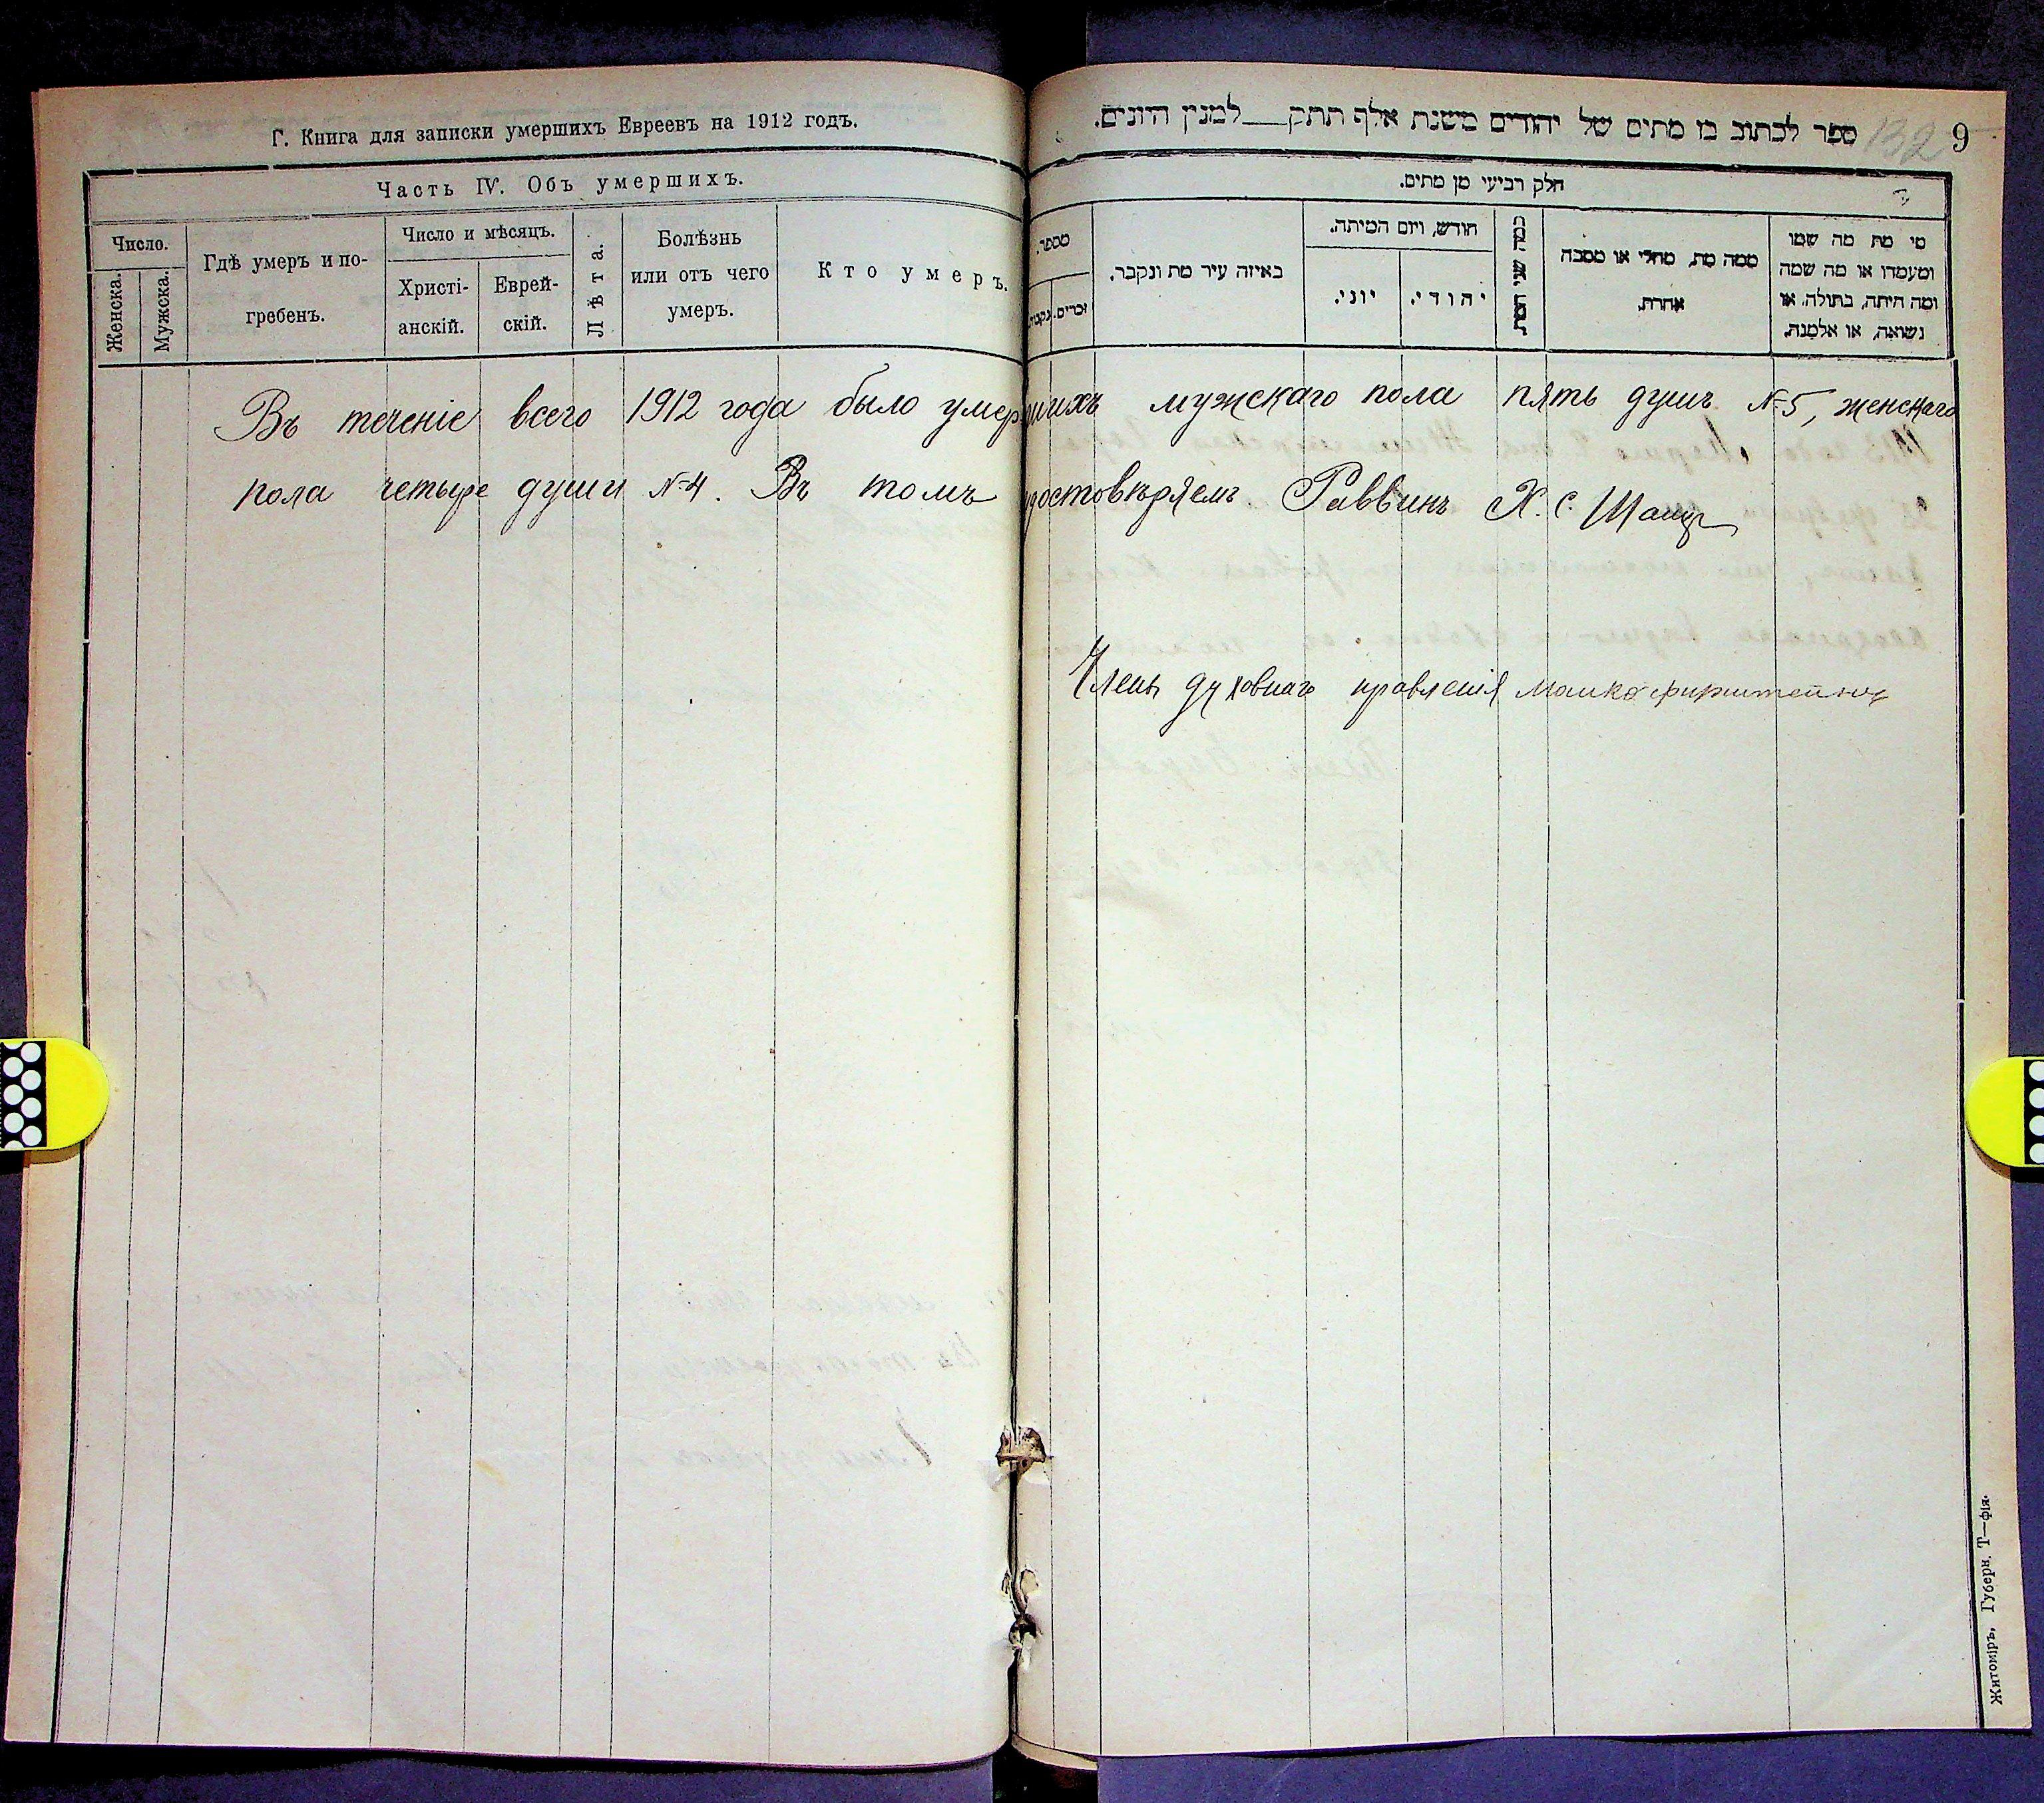 Г. Книга для записки умершихъ Евреевъ на 1912 годъ.
Часть IV. Объ умершихъ.
Число.
Женска.
Мужска.
Гдѣ умеръ и по-
гребенъ.
Число и мѣсяцъ.
Христі-
анскій.
Еврей-
скій.
Лѣта.
Болѣзнь
или отъ чего
умеръ.
Кто умеръ.
ספר לכתוב בו מתים של יהודים משנת אלף תתק___למנין היונים.
132 9
חלק רביעי מן מתים.
מספר.
זכרים.
נקבות.
באיזה עיר מת ונקבר.
חודש, ויום המיתה.
יוני.
יהודי.
כמה שני המת
ממה מת, מחלי או מסבה
אחרת.
מי מת מה שמו
ומעמדו או מה שמה
ומה היתה, בתולה, או
נשואה, או אלמנה.
Въ теченіе всего 1912 года было умершихъ мужскаго пола пять душъ №5, женскаго
пола четыре души №4. Въ томъ удостовѣряемъ Раввинъ Х. С.
Членъ духовнаго правленія
Житоміръ, Губерн. Т—фія.